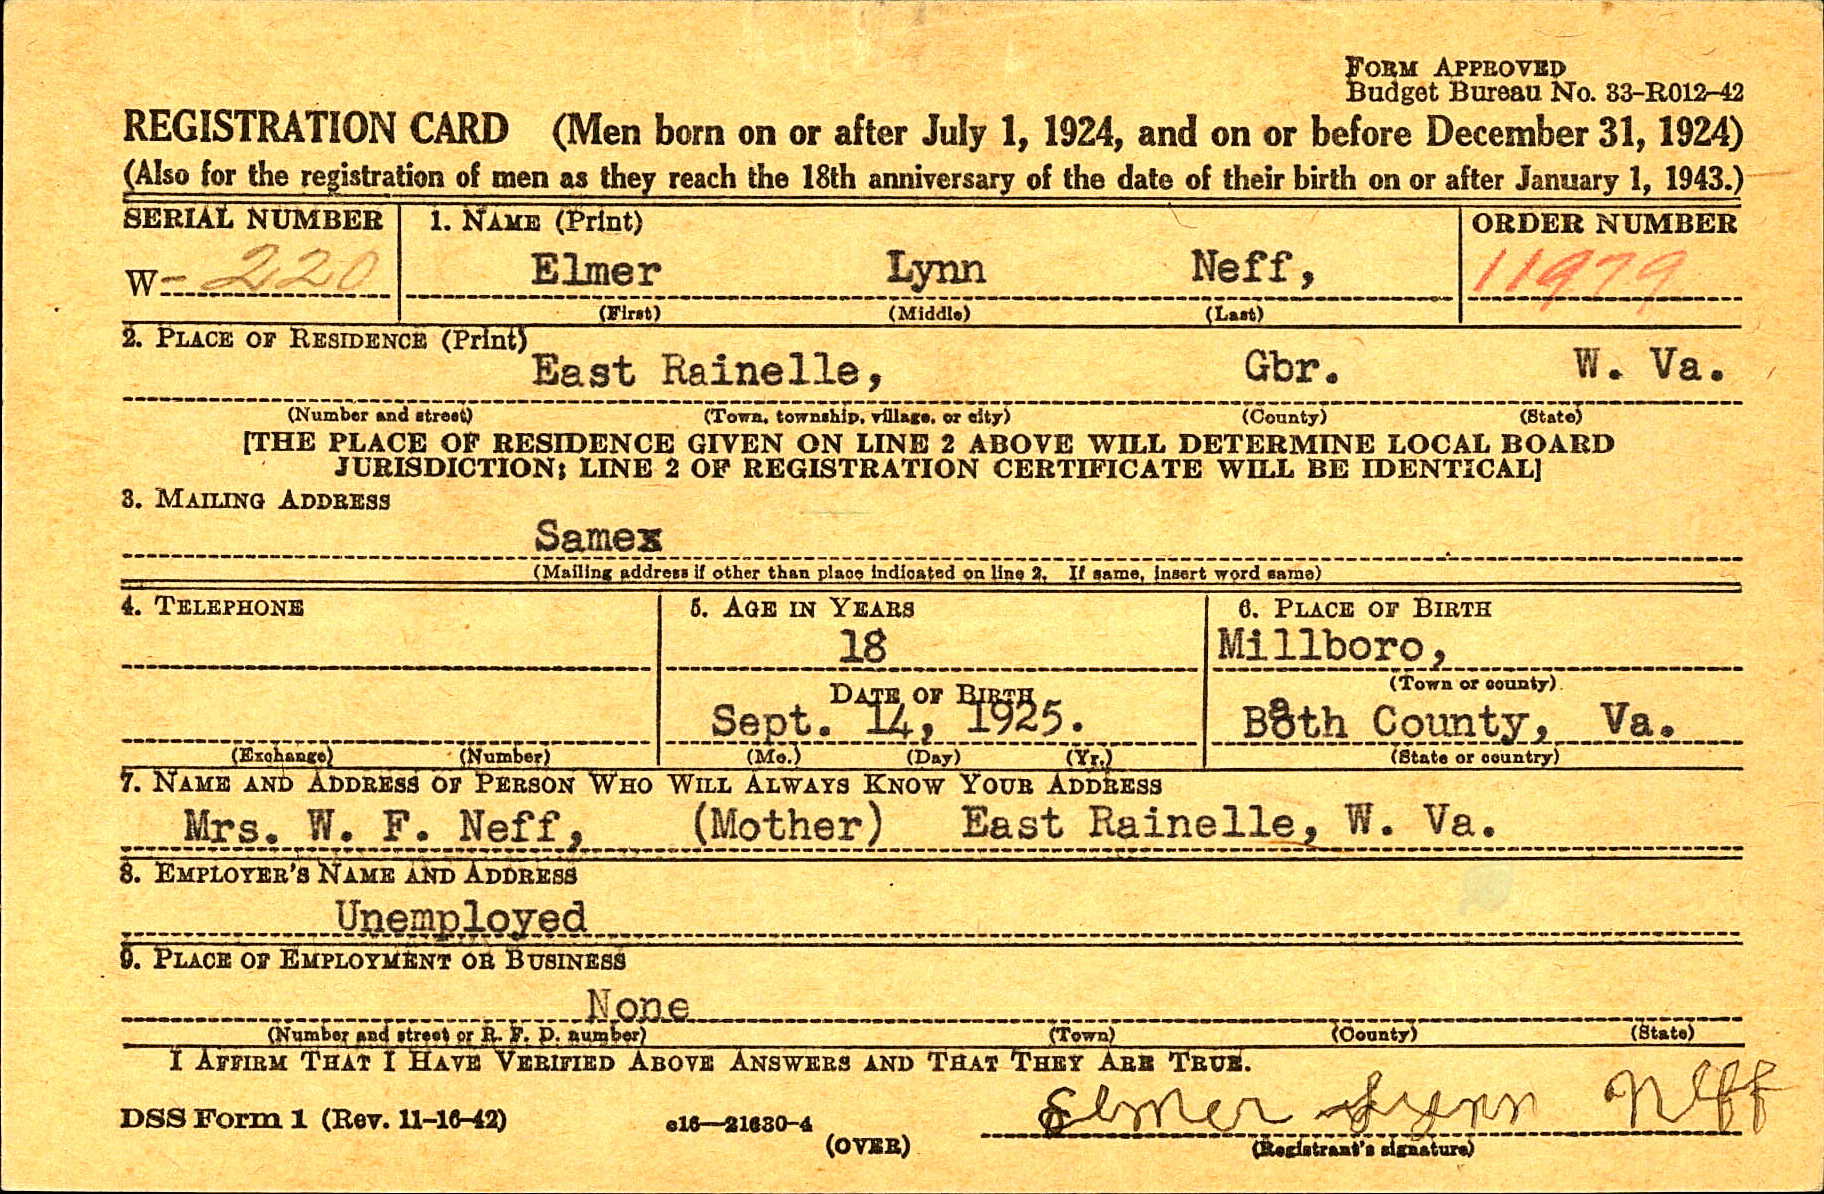 FORM APPROVED
Budget Bureau No. 33-R012-42
REGISTRATION CARD (Men born on or after July 1, 1924, and on or before December 31, 1924)
(Also for the registration of men as they reach the 18th anniversary of the date of their birth on or after January 1, 1943.)
SERIAL NUMBER 1. NAME (Print) ORDER NUMBER
W- 220 Elmer Lynn Neff, 11979
(First) (Middle) (Last)
2. PLACE OF RESIDENCE (Print)
East Rainelle, Gbr. W. Va.
(Number and street) (Town, township, village, or city) (County) (State)
[THE PLACE OF RESIDENCE GIVEN ON LINE 2 ABOVE WILL DETERMINE LOCAL BOARD
JURISDICTION; LINE 2 OF REGISTRATION CERTIFICATE WILL BE IDENTICAL]
3. MAILING ADDRESS
Samex
(Mailing address if other than place indicated on line 2. If same, insert word same)
4. TELEPHONE 5. AGE IN YEARS 6. PLACE OF BIRTH
18 Millboro,
(Town or county)
DATE OF BIRTH
Sept. 14, 1925. Bath County, Va.
(Exchange) (Number) (Mo.) (Day) (Yr.) (State or country)
7. NAME AND ADDRESS OF PERSON WHO WILL ALWAYS KNOW YOUR ADDRESS
Mrs. W. F. Neff, (Mother) East Rainelle, W. Va.
8. EMPLOYER'S NAME AND ADDRESS
Unemployed
9. PLACE OF EMPLOYMENT OR BUSINESS
None
(Number and street or R. F. D. number) (Town) (County) (State)
I AFFIRM THAT I HAVE VERIFIED ABOVE ANSWERS AND THAT THEY ARE TRUE.
Elmer Lynn Neff
DSS Form 1 (Rev. 11-16-42) c16—21630-4
(OVER) (Registrant's signature)